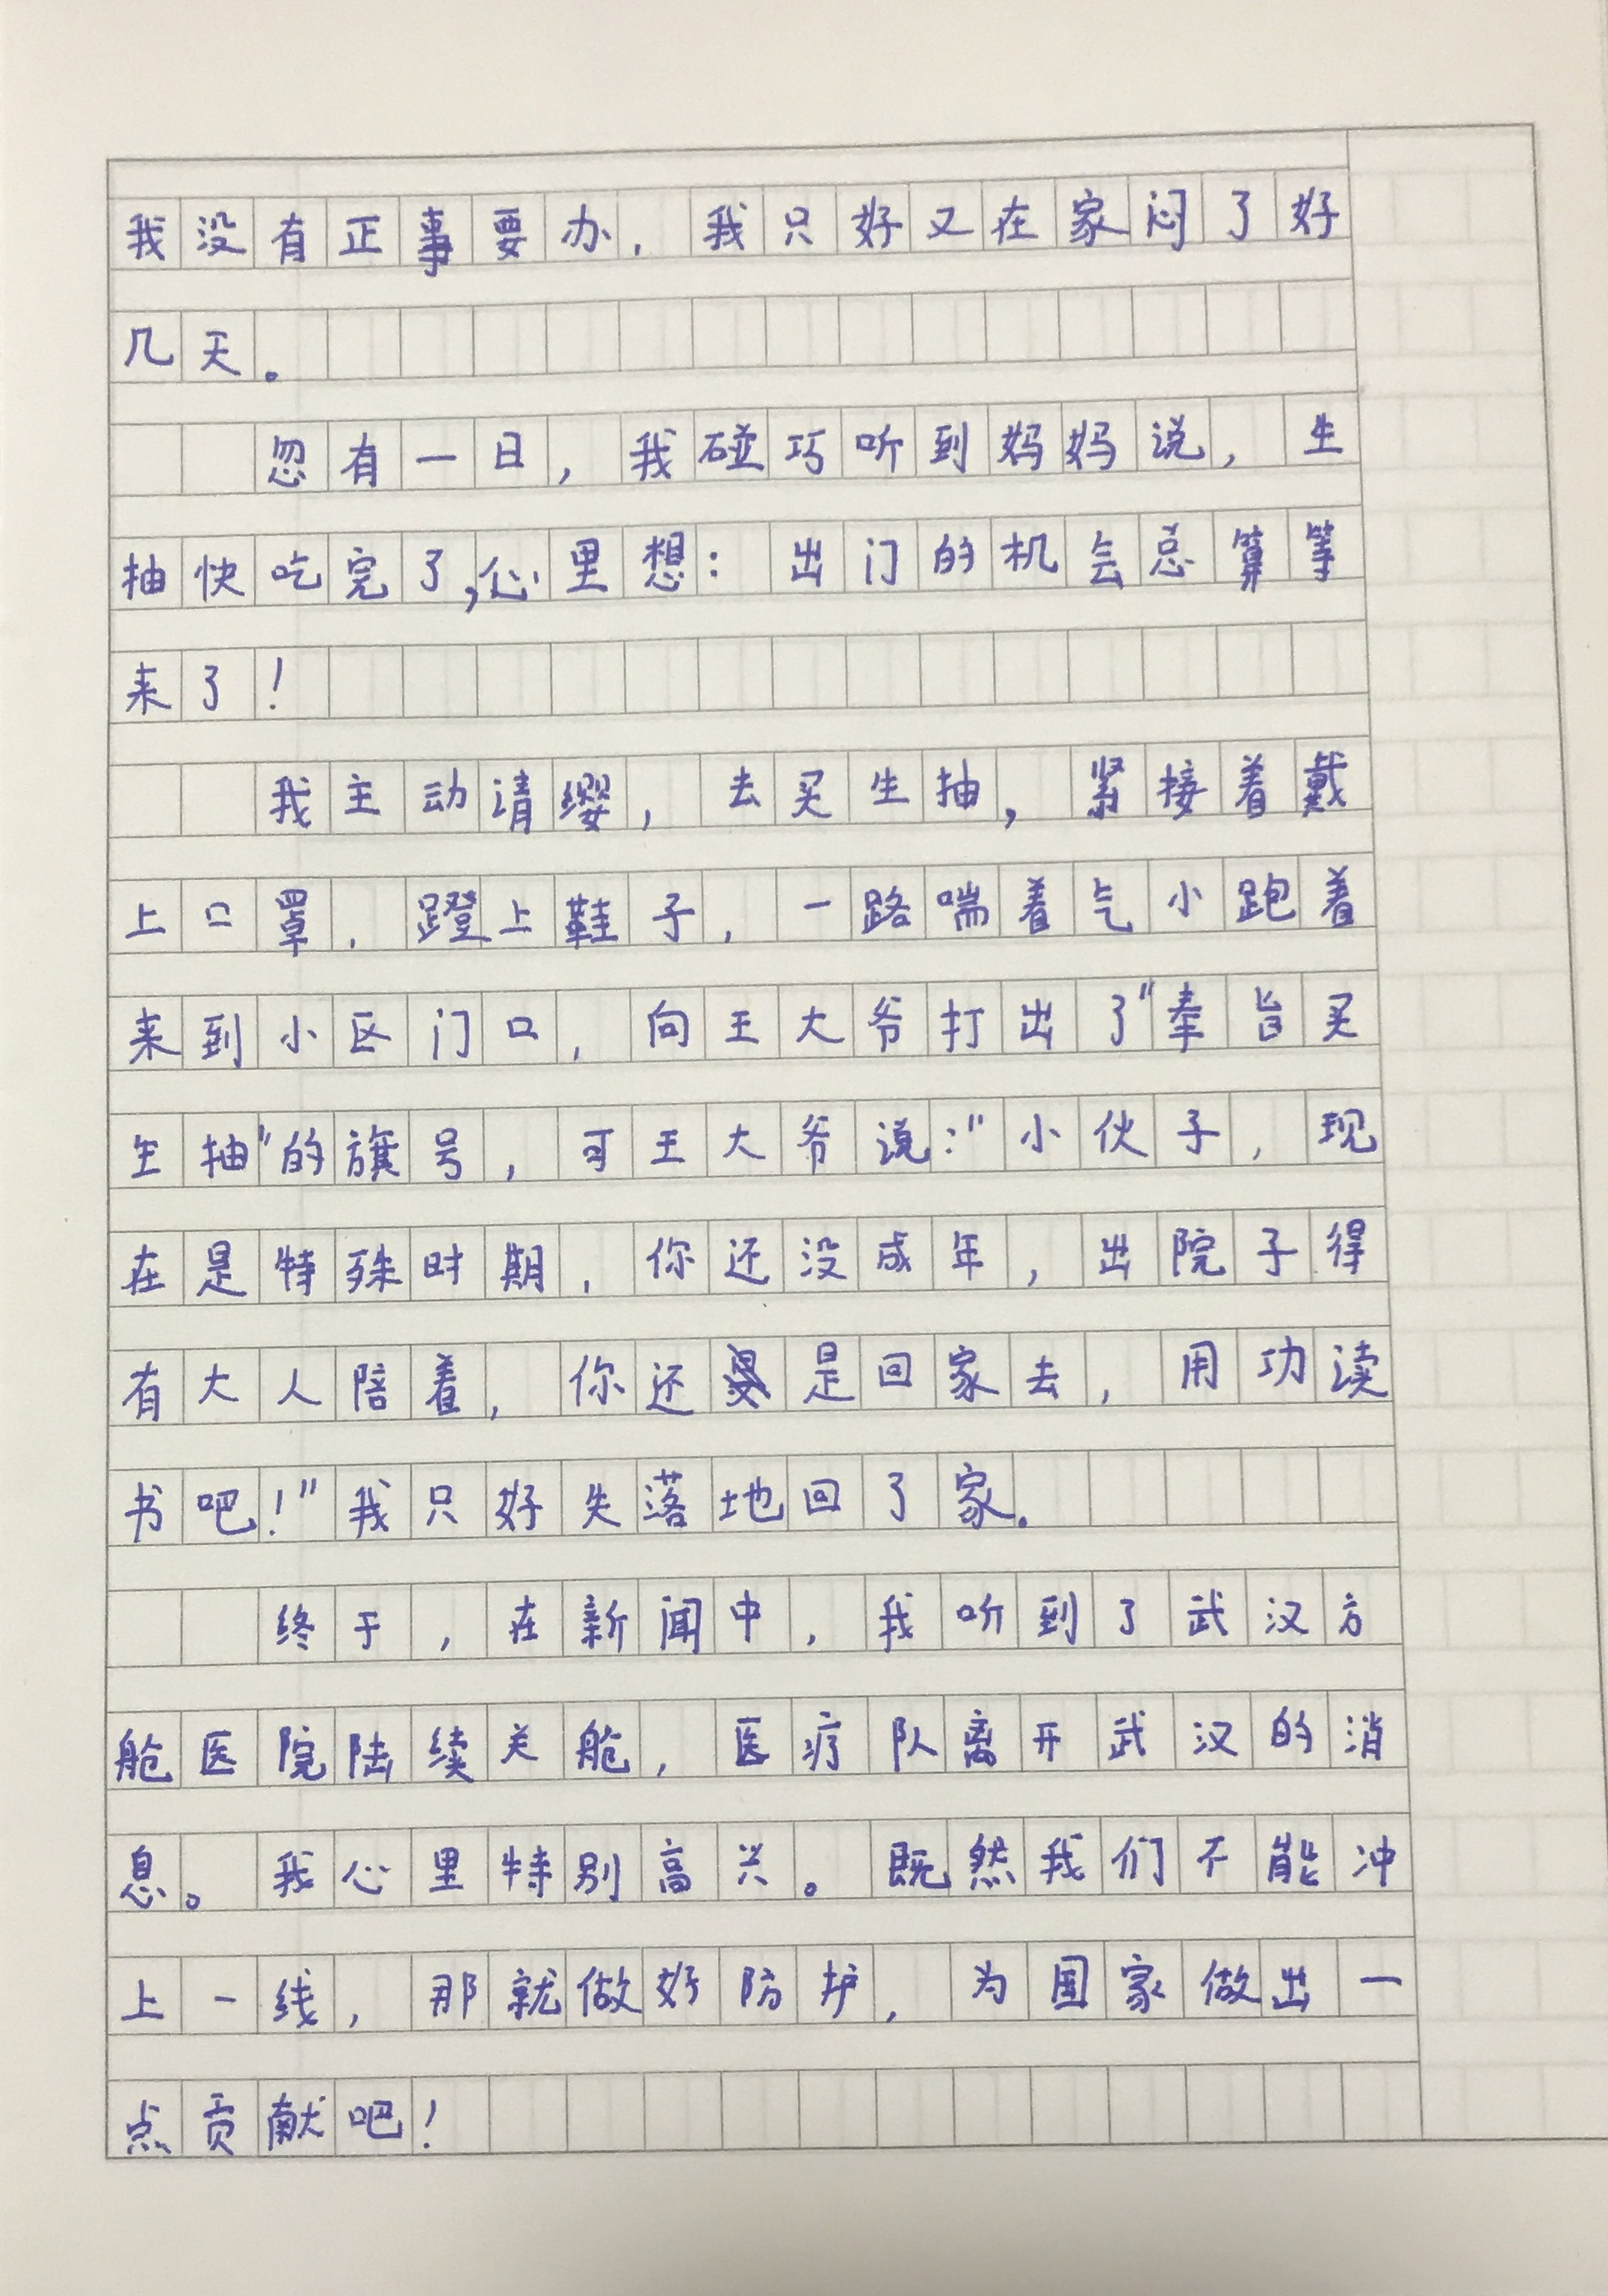 我没有正事要办，我只好又在家闷了好
几天。
忽有一日，我碰巧听到妈妈说，生
抽快吃完了，心里想：出门的机会总算等
来了！
我主动请缨，去买生抽，紧接着戴
上口罩，蹬上鞋子，一路喘着气小跑着
来到小区门口，向王大爷打出了“奉旨买
生抽”的旗号，可王大爷说：“小伙子，现
在是特殊时期，你还没成年，出院子得
有大人陪着，你还是回家去，用功读
书吧！”我只好失落地回了家。
终于，在新闻中，我听到了武汉方
舱医院陆续关舱，医疗队离开武汉的消
息。我心里特别高兴。既然我们不能冲
上一线，那就做好防护，为国家做出一
点贡献吧！